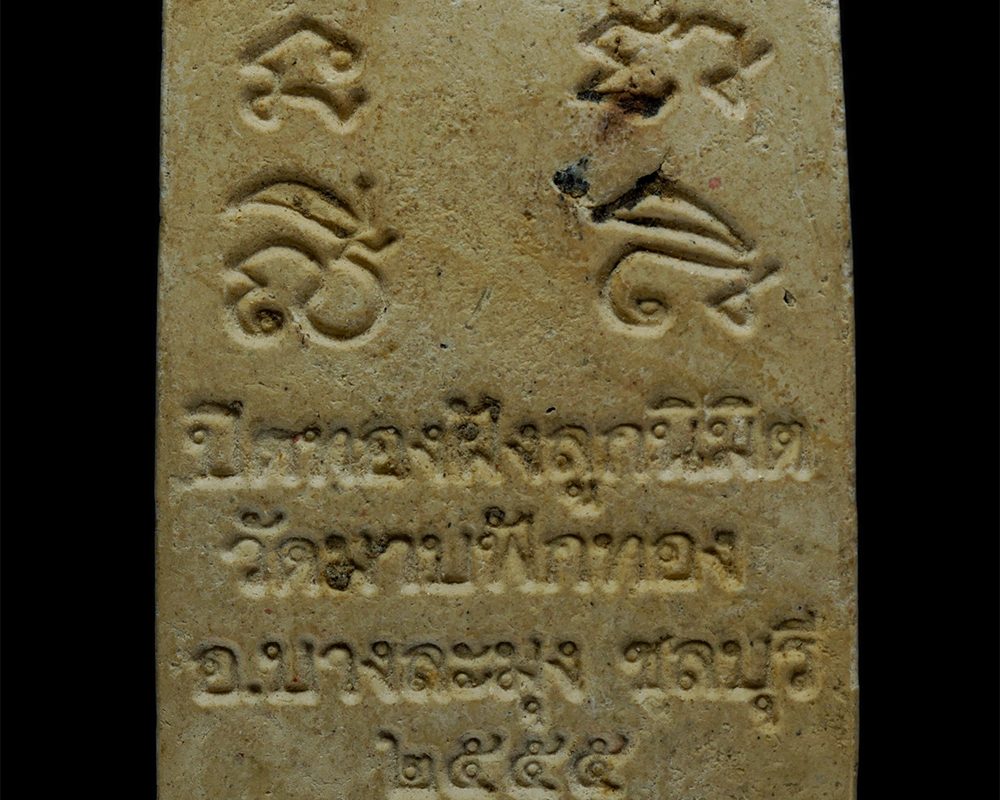 ปิดทองฝังลูกนิมิต
วัดมาบฟักทอง
อ.บางละมุง ชลบุรี
๒๕๕๕